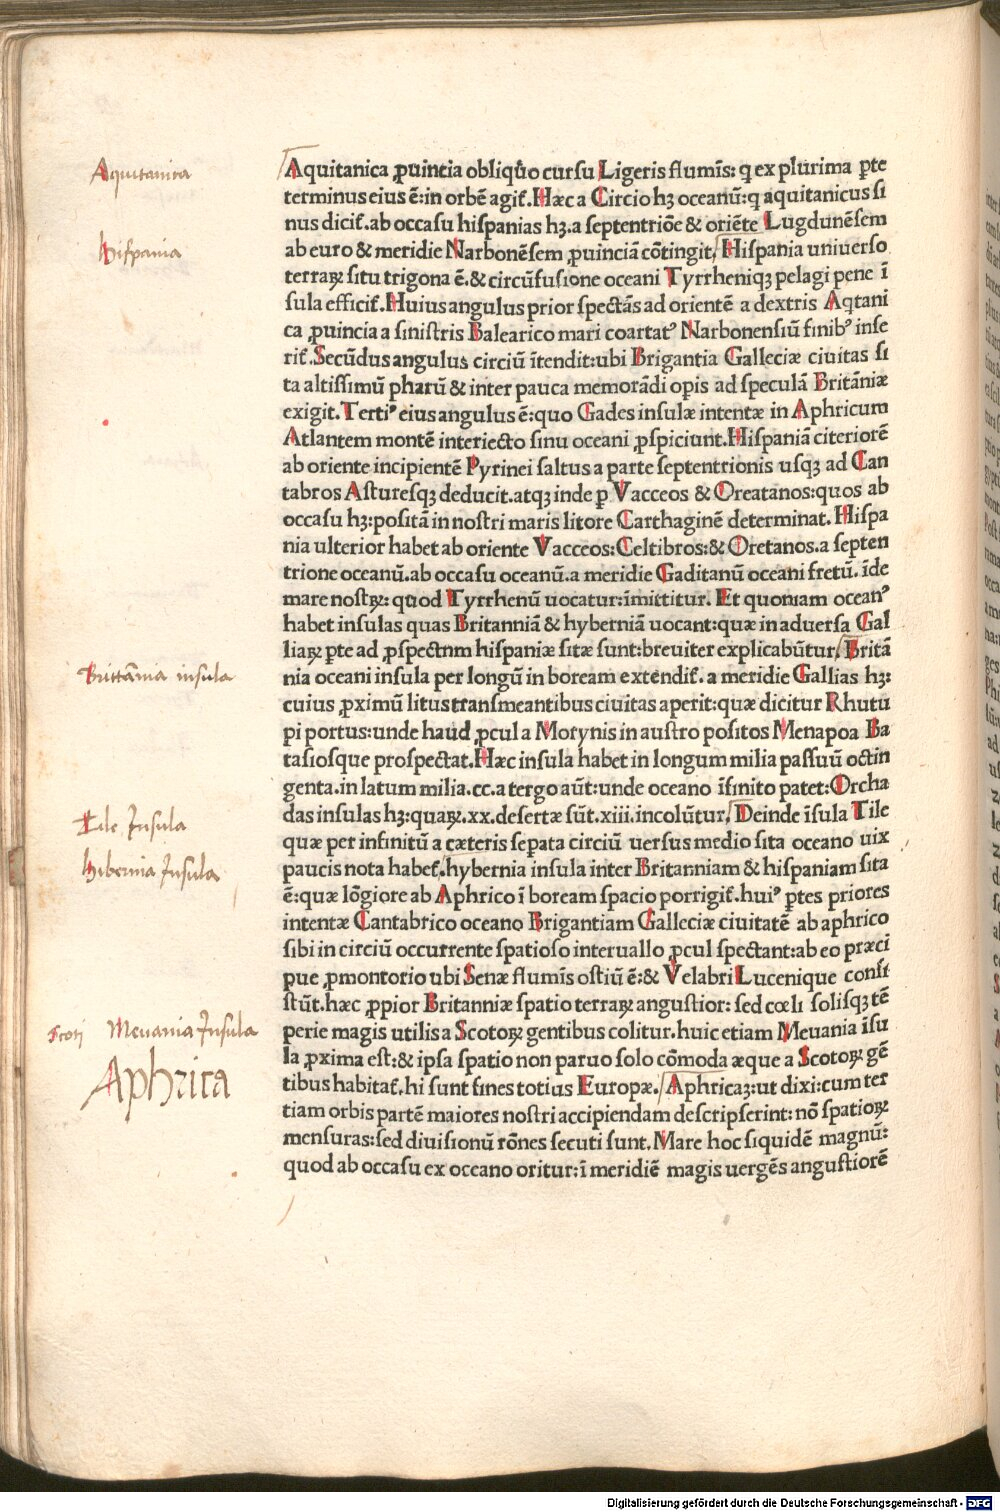 Aquitanica
Hispania
Brittãnia insula
Tile Insula
Hibernia Insula
Scoti Meuania Insula
Aphrica
Aquitanica ꝓuintia obliquo cursu Ligeris flumĩs: q̃ ex plurima ꝑte
terminus eius ẽ: in orbẽ agit᷑. Hæc a Circio hꝫ oceanũ: q̃ aquitanicus si
nus dicit᷑. ab occasu hispanias hꝫ. a septentriõe & oriẽte Lugdunẽsem
ab euro & meridie Narbonẽsem ꝓuinciã cõtingit. Hispania uniuerso
terraꝝ situ trigona ẽ. & circũfusione oceani Tyrrheniqꝫ pelagi pene ĩ
sula efficit᷑. Huius angulus prior spectãs ad orientẽ a dextris Aq̃tani
ca ꝓuincia a sinistris Balearico mari coartatꝰ Narbonensiũ finibꝰ inse
rit᷑. Secũdus angulus circiũ ĩtendit: ubi Brigantia Galleciæ ciuitas si
ta altissimũ pharũ & inter pauca memorãdi opis ad speculã Britãniæ
exigit. Tertiꝰ eius angulus ẽ: quo Gades insulæ intentæ in Aphricum
Atlantem montẽ interiecto sinu oceani ꝓspiciunt. Hispaniã citeriorẽ
ab oriente incipientẽ Pyrinei saltus a parte septentrionis usqꝫ ad Can
tabros Asturesqꝫ deducit. atqꝫ inde ꝑ Vacceos & Oreatanos: quos ab
occasu hꝫ: positã in nostri maris litore Carthaginẽ determinat. Hispa
nia ulterior habet ab oriente Vacceos: Celtibros: & Oretanos. a septen
trione oceanũ. ab occasu oceanũ. a meridie Gaditanũ oceani fretũ. ĩde
mare nostꝝ: quod Tyrrhenũ uocatur: ĩmittitur. Et quoniam oceanꝰ
habet insulas quas Britanniã & hyberniã uocant: quæ in aduersa Gal
liaꝝ ꝑte ad ꝓspectnm hispaniæ sitæ sunt: breuiter explicabũtur. Britã
nia oceani insula per longũ in boream extendit᷑. a meridie Gallias hꝫ:
cuius ꝓximũ litus transmeantibus ciuitas aperit: quæ dicitur Rhutu
pi portus: unde haud ꝓcul a Morynis in austro positos Menapoa Ba
tasiosque prospectat. Hæc insula habet in longum milia passuũ octin
genta. in latum milia. cc. a tergo aũt: unde oceano ĩfinito patet: Orcha
das insulas hꝫ: quaꝝ. xx. desertæ sũt. xiii. incolũtur. Deinde ĩsula Tile
quæ per infinitũ a cæteris seꝑata circiũ uersus medio sita oceano uix
paucis nota habet᷑. hybernia insula inter Britanniam & hispaniam sita
ẽ: quæ lõgiore ab Aphrico ĩ boream spacio porrigit᷑. huiꝰ ꝑtes priores
intentæ Cantabrico oceano Brigantiam Galleciæ ciuitatẽ ab aphrico
sibi in circiũ occurrente spatioso interuallo ꝓcul spectant: ab eo præci
pue ꝓmontorio ubi Senæ flumĩs ostiũ ẽ: & Velabri Lucenique consi
stũt. hæc ꝓpior Britanniæ spatio terraꝝ angustior: sed cœli solisqꝫ tẽ
perie magis utilis a Scotoꝝ gentibus colitur. huic etiam Meuania ĩsu
la ꝓxima est: & ipsa spatio non paruo solo cõmoda æque a Scotoꝝ gẽ
tibus habitat᷑. hi sunt fines totius Europæ. Aphricaꝫ: ut dixi: cum ter
tiam orbis partẽ maiores nostri accipiendam descripserint: nõ spatioꝝ
mensuras: sed diuisionũ rõnes secuti sunt. Mare hoc siquidẽ magnũ:
quod ab occasu ex oceano oritur: ĩ meridiẽ magis uergẽs angustiorẽ
Digitalisierung gefördert durch die Deutsche Forschungsgemeinschaft - DFG